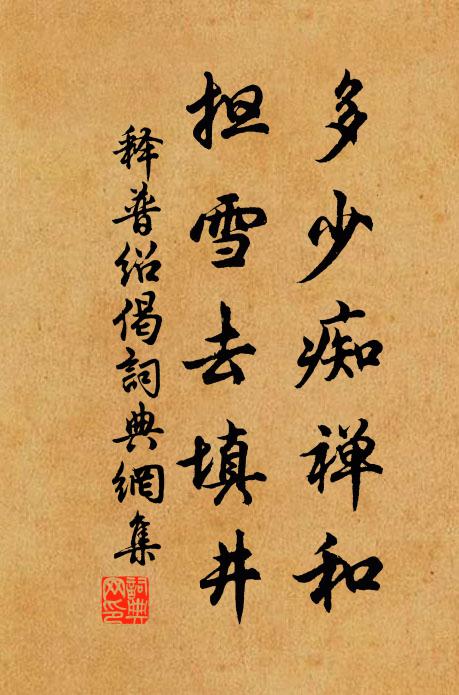 多少痴禅和
担雪去填井
释普绍偈詞典網集
詞典網印